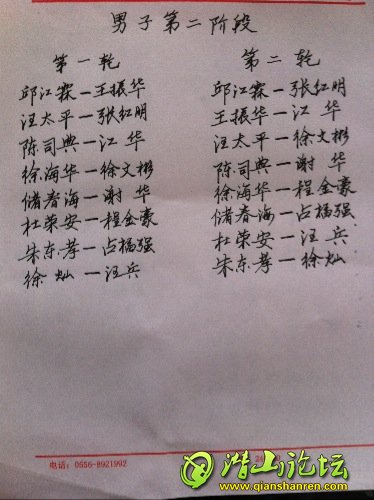 男子第二阶段
第一轮
邱江霖—王振华
汪太平—张红明
陈司典—江华
徐海华—徐文彬
储春海—谢华
杜荣安—程金豪
朱东孝—占福强
徐灿—汪兵
第二轮
邱江霖—张红明
王振华—江华
汪太平—徐文彬
陈司典—谢华
徐海华—程金豪
储春海—占福强
杜荣安—汪兵
朱东孝—徐灿
电话：0556-8921992
潜山论坛
www.qianshanren.com